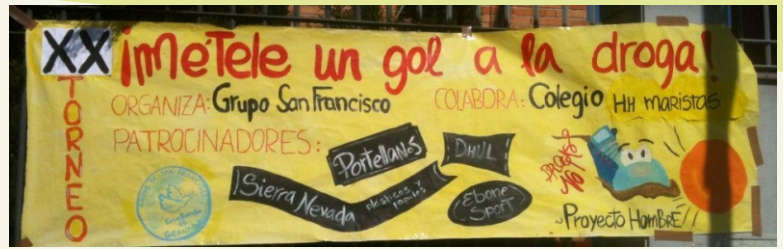 XX ¡MéTele un gol a la droga!
TORNEO
ORGANIZA: Grupo San Francisco
COLABORA: Colegio HH maristas
PATROCINADORES:
Portellanos
DHUL
Sierra Nevada
plásticos y
Ebone
Sport
Proyecto HomBRE